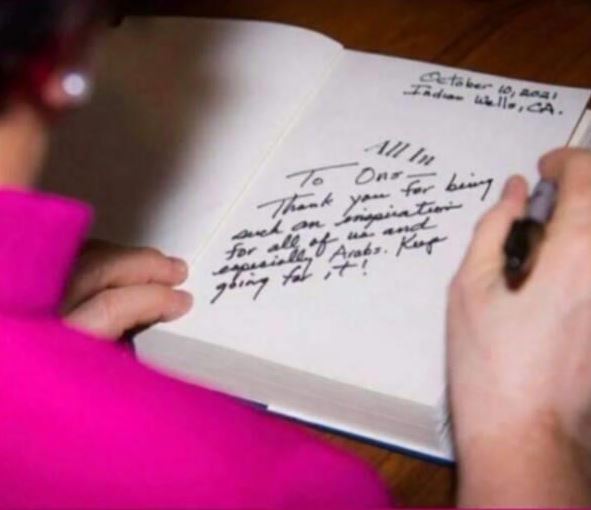 October 10, 2021
Indian Wells, CA.
All In
To Ons –
Thank you for being
such an inspiration
for all of us and
especially Arabs. Keep
going for it!